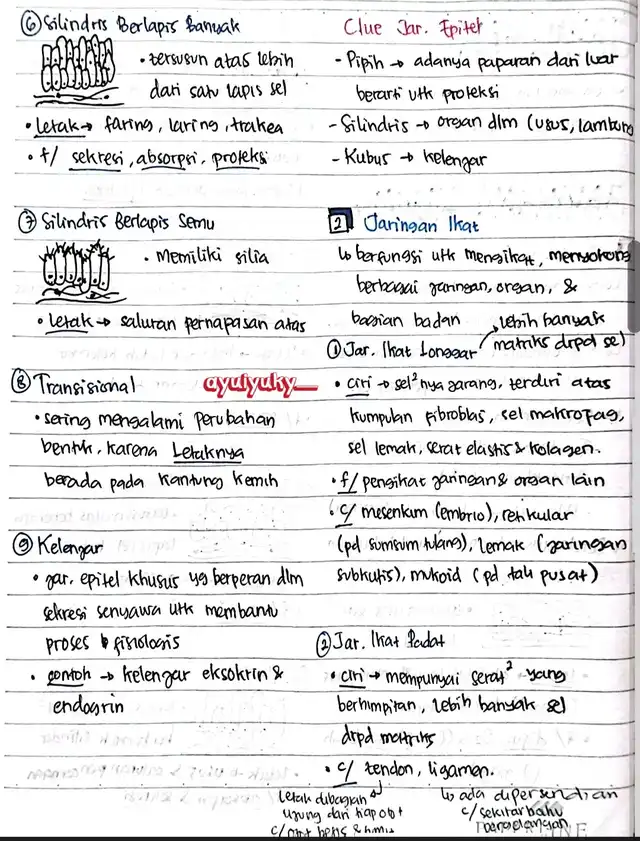 ⑥ Silindris Berlapis Banyak
• tersusun atas lebih
dari satu lapis sel
• letak → faring, laring, trakea
• f/ sekresi, absorpsi, proteksi
⑦ Silindris Berlapis Semu
• Memiliki silia
• letak → saluran pernapasan atas
⑧ Transisional
ayulyuky__
• sering mengalami perubahan
bentuk, karena Letaknya
berada pada kantung kemih
⑨ Kelenjar
• jar. epitel khusus yg berperan dlm
sekresi senyawa utk membantu
proses fisiologis
• contoh → kelenjar eksokrin &
endogrin
Clue Jar. Epitel
- Pipih → adanya paparan dari luar
berarti utk proteksi
- Silindris → organ dlm (usus, lambung
- Kubus → kelenjar
2 Jaringan Ikat
↳ berfungsi utk mengikat, menyokong
berbagai jaringan, organ, &
bagian badan
① Jar. Ikat Longgar → lebih banyak
matriks drpd sel
• ciri → sel²nya jarang, terdiri atas
kumpulan fibroblas, sel makrofag,
sel lemak, serat elastis & kolagen.
• f/ pengikat jaringan & organ lain
• c/ mesenkim (embrio), retikular
(pd sumsum tulang), lemak (jaringan
subkutis), mukoid (pd tali pusat)
② Jar. Ikat Padat
• ciri → mempunyai serat² yang
berhimpitan, lebih banyak sel
drpd matriks
• c/ tendon, ligamen.
letak dibagian
ujung dari tiap otot
↳ ada dipersendian
c/ sekitar bahu
pergelangan